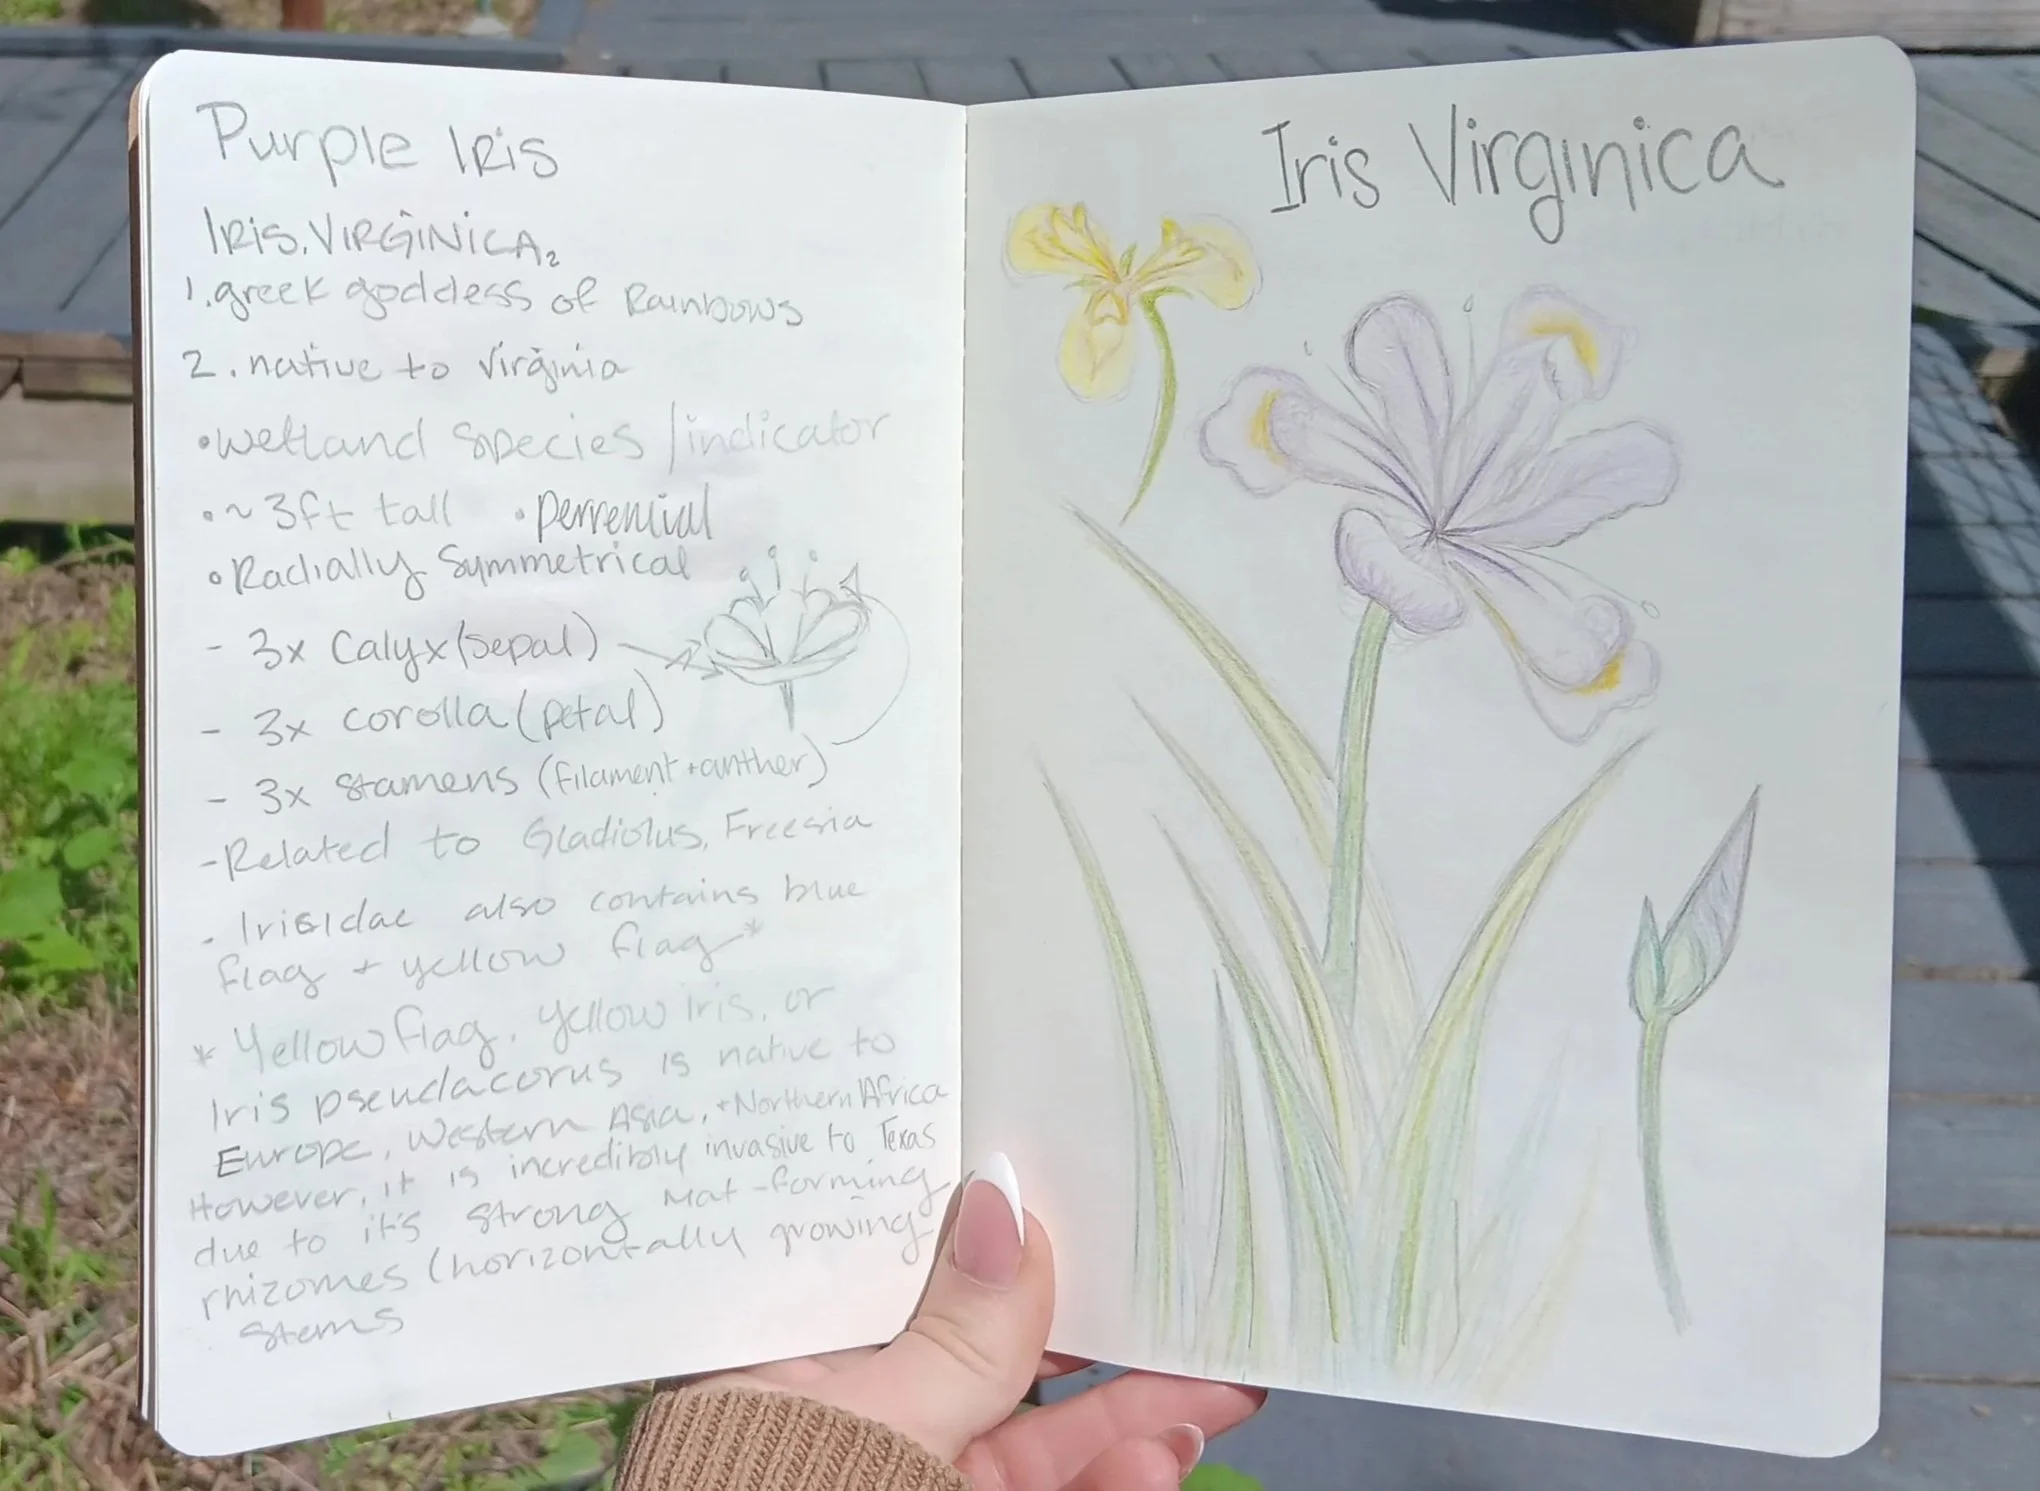 Purple Iris
Iris. Virginica₂
1. greek goddess of Rainbows
2. native to Virginia
• wetland species / indicator
• ~ 3ft tall • perrenial
• Radially Symmetrical
- 3x Calyx (sepal)
- 3x corolla (petal)
- 3x stamens (filament + anther)
- Related to Gladiolus, Freesia
- Irisidae also contains blue
flag + yellow flag *
* Yellow flag, yellow iris, or
Iris pseudacorus is native to
Europe, Western Asia, + Northern Africa
However, it is incredibly invasive to Texas
due to it's strong mat-forming
rhizomes (horizontally growing
stems
Iris Virginica